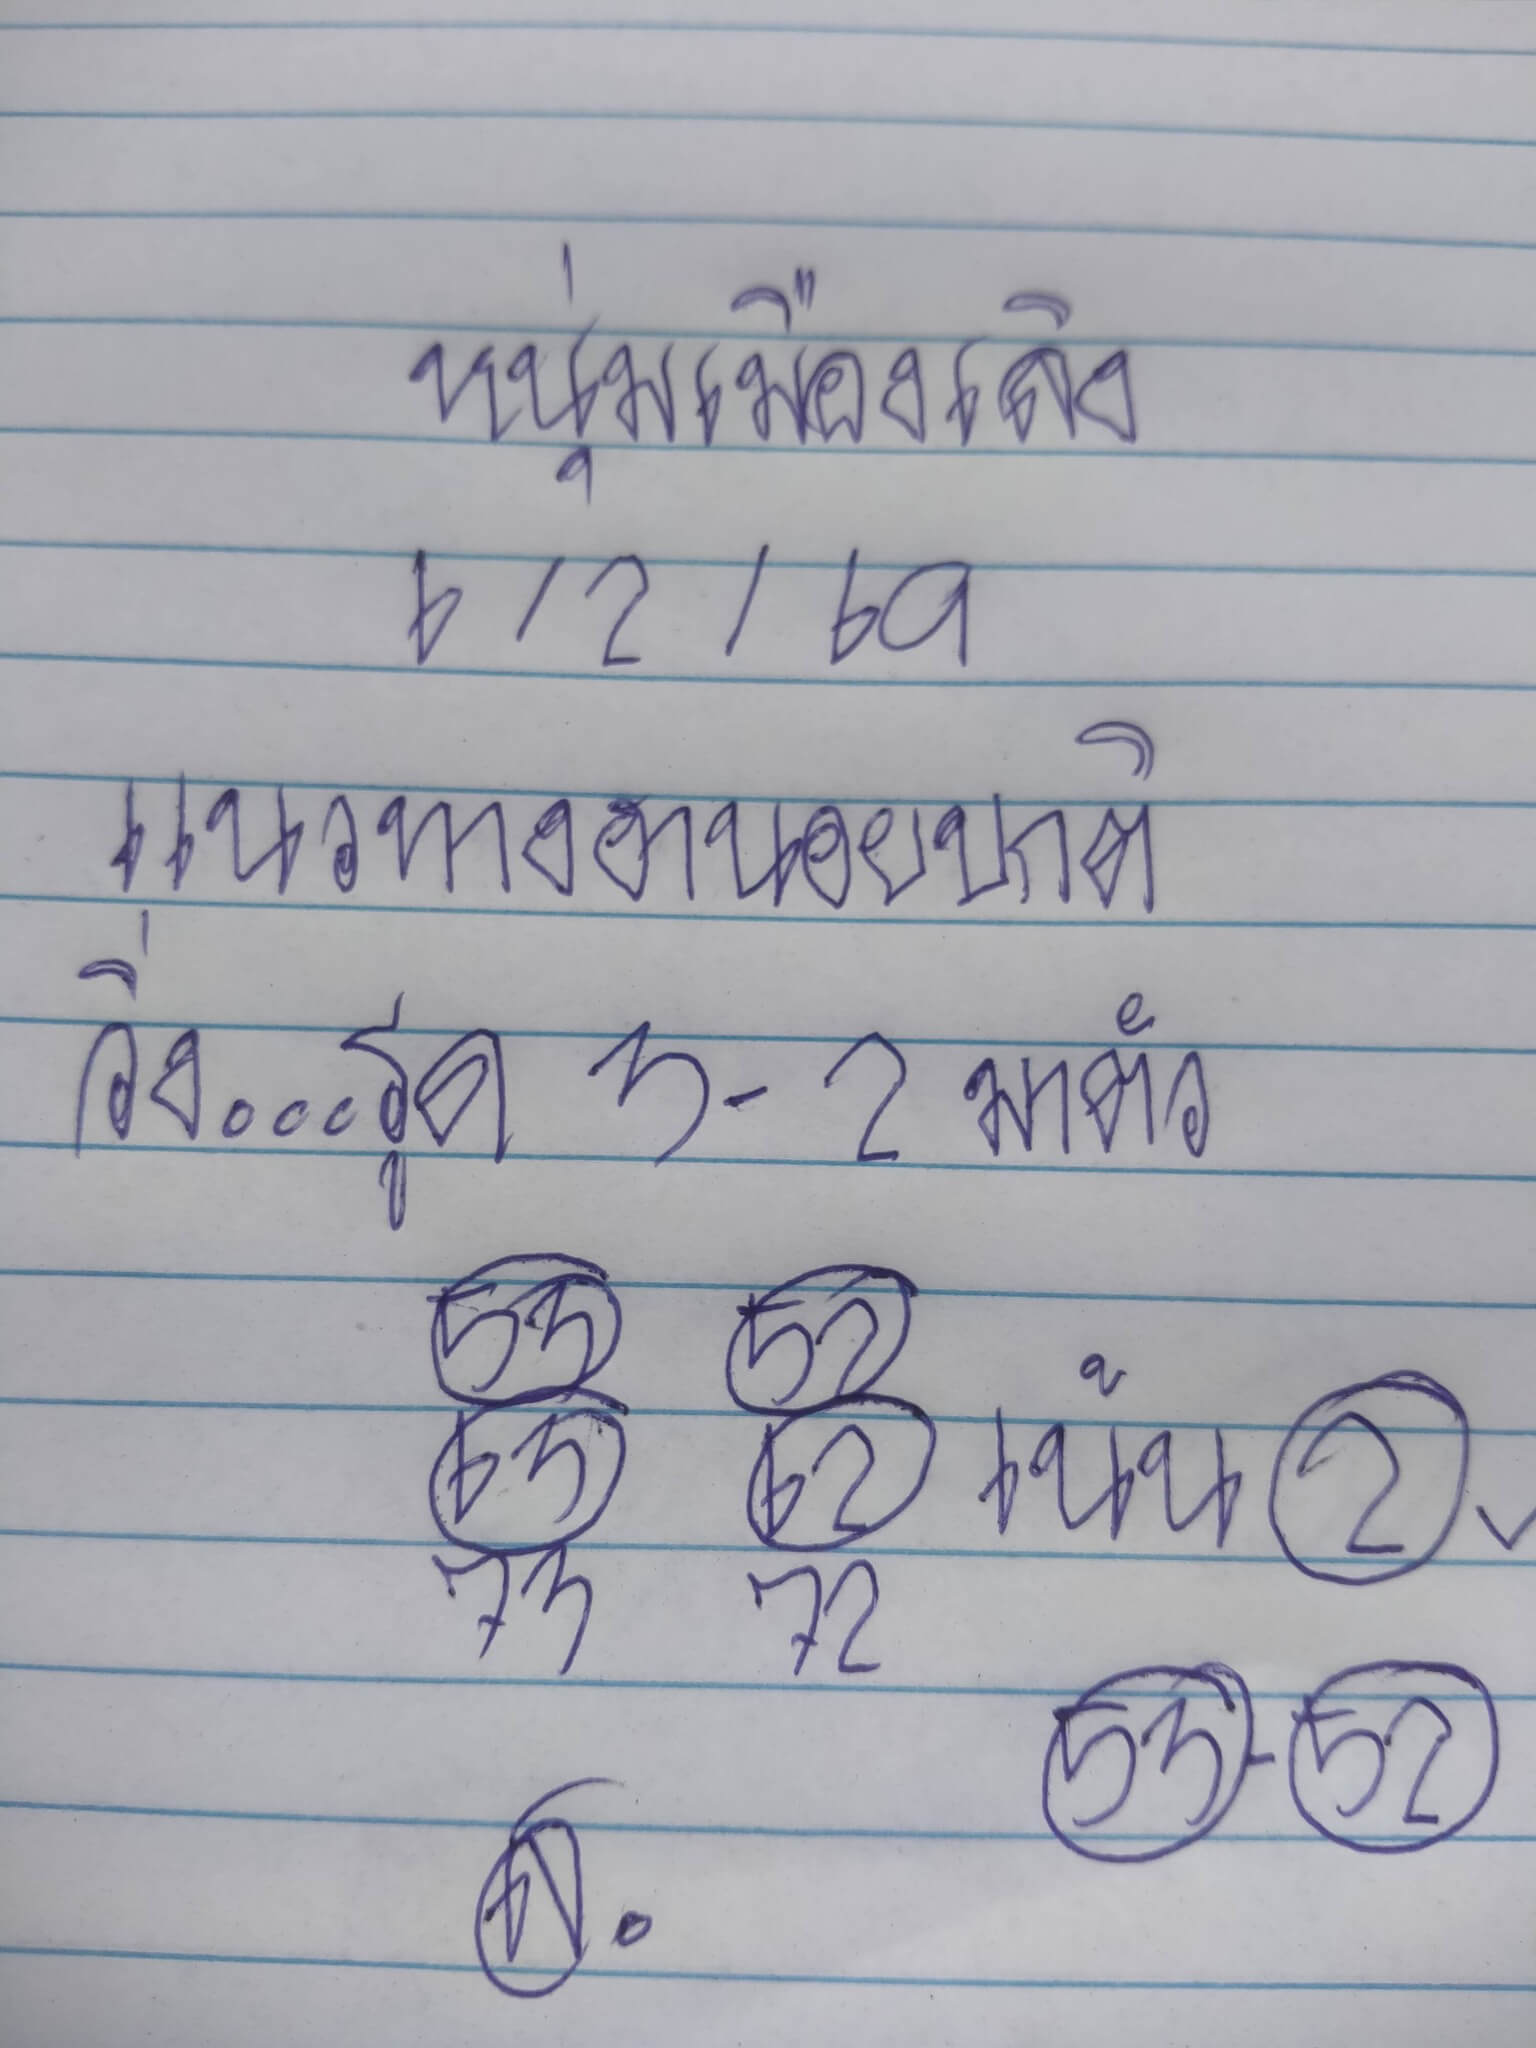 หนุ่มเมืองเลิง
6/2/69
แนวทางฮานอยปกติ
วิ่ง...รูด 3-2 มาตัว
53 52
63 62 เน้น 2
73 72
53-52